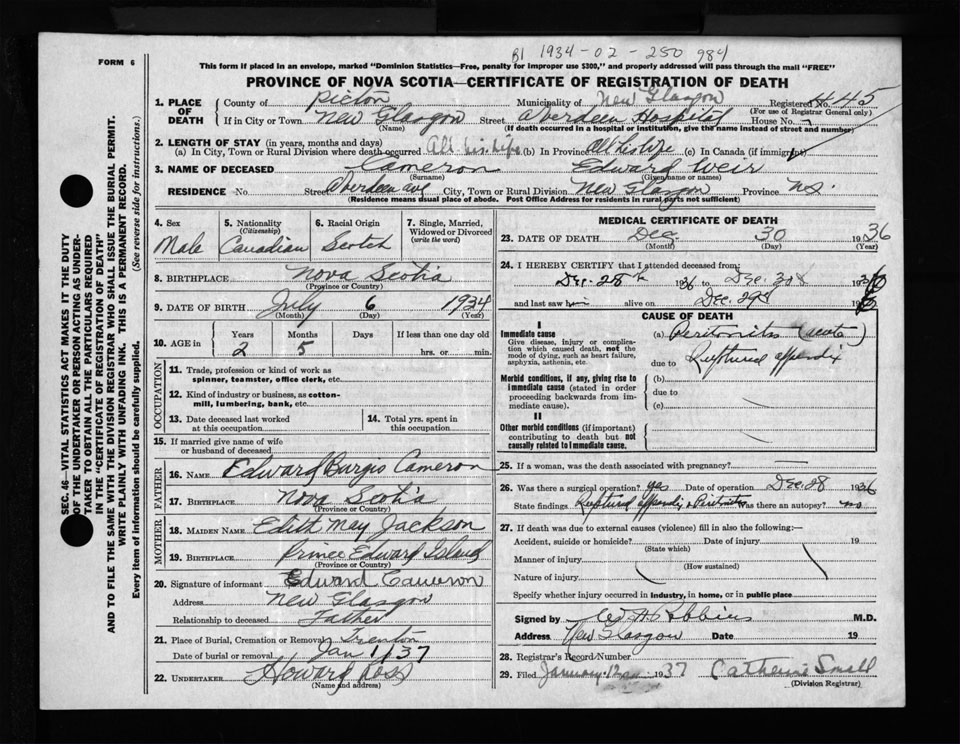 B1 1934-02-250984
FORM 6
This form if placed in an envelope, marked "Dominion Statistics—Free, penalty for improper use $300," and properly addressed will pass through the mail "FREE"
PROVINCE OF NOVA SCOTIA—CERTIFICATE OF REGISTRATION OF DEATH
SEC. 46—VITAL STATISTICS ACT MAKES IT THE DUTY
OF THE UNDERTAKER OR PERSON ACTING AS UNDER-
TAKER TO OBTAIN ALL THE PARTICULARS REQUIRED
IN THE "CERTIFICATE OF REGISTRATION OF DEATH"
AND TO FILE THE SAME WITH THE DIVISION REGISTRAR WHO SHALL ISSUE THE BURIAL PERMIT.
WRITE PLAINLY WITH UNFADING INK. THIS IS A PERMANENT RECORD.
Every item of information should be carefully supplied. (See reverse side for instructions.)
1. PLACE OF DEATH
County of Pictou Municipality of New Glasgow Registered No. 445
(For use of Registrar General only)
If in City or Town New Glasgow Street Aberdeen Hospital House No.
(Name) (If death occurred in a hospital or institution, give the name instead of street and number)
2. LENGTH OF STAY (in years, months and days)
(a) In City, Town or Rural Division where death occurred All his life (b) In Province All his life (c) In Canada (if immigrant)
3. NAME OF DECEASED Cameron Edward Weir
(Surname) (Given name or names)
RESIDENCE No. Street Aberdeen ave City, Town or Rural Division New Glasgow Province N.S.
(Residence means usual place of abode. Post Office Address for residents in rural parts not sufficient)
4. Sex Male
5. Nationality (Citizenship) Canadian
6. Racial Origin Scotch
7. Single, Married, Widowed or Divorced (write the word)
8. BIRTHPLACE Nova Scotia
(Province or Country)
9. DATE OF BIRTH July 6 1934
(Month) (Day) (Year)
10. AGE in Years 2 Months 5 Days If less than one day old
hrs. or min.
OCCUPATION
11. Trade, profession or kind of work as
spinner, teamster, office clerk, etc.
12. Kind of industry or business, as cotton-
mill, lumbering, bank, etc.
13. Date deceased last worked at this occupation
14. Total yrs. spent in this occupation
15. If married give name of wife
or husband of deceased
FATHER
16. NAME Edward Burgis Cameron
17. BIRTHPLACE Nova Scotia
(Province or Country)
MOTHER
18. MAIDEN NAME Edith May Jackson
19. BIRTHPLACE Prince Edward Island
(Province or Country)
20. Signature of informant Edward Cameron
Address New Glasgow
Relationship to deceased Father
21. Place of Burial, Cremation or Removal Trenton
Date of burial or removal Jan 1/37
22. UNDERTAKER Howard Ross
(Name and address)
MEDICAL CERTIFICATE OF DEATH
23. DATE OF DEATH Dec 30 1936
(Month) (Day) (Year)
24. I HEREBY CERTIFY that I attended deceased from:
Dec. 28th 1936 to Dec. 30th 1936
and last saw him alive on Dec. 29th 1936
CAUSE OF DEATH
I
Immediate cause
Give disease, injury or complica-
tion which caused death, not the
mode of dying, such as heart failure,
asphyxia, asthenia, etc.
(a) Peritonitis (acute)
due to Ruptured appendix
Morbid conditions, if any, giving rise to
immediate cause (stated in order
proceeding backwards from im-
mediate cause).
(b)
due to
(c)
II
Other morbid conditions (if important)
contributing to death but not
causally related to immediate cause.
25. If a woman, was the death associated with pregnancy?
26. Was there a surgical operation? yes Date of operation Dec. 28 1936
State findings Ruptured appendix + Peritonitis Was there an autopsy? no
27. If death was due to external causes (violence) fill in also the following:—
Accident, suicide or homicide? Date of injury 19
(State which)
Manner of injury
(How sustained)
Nature of injury
Specify whether injury occurred in industry, in home, or in public place
Signed by M.D.
Address New Glasgow Date 19
28. Registrar's Record Number
29. Filed January 12 1937 Catherine Small
(Division Registrar)